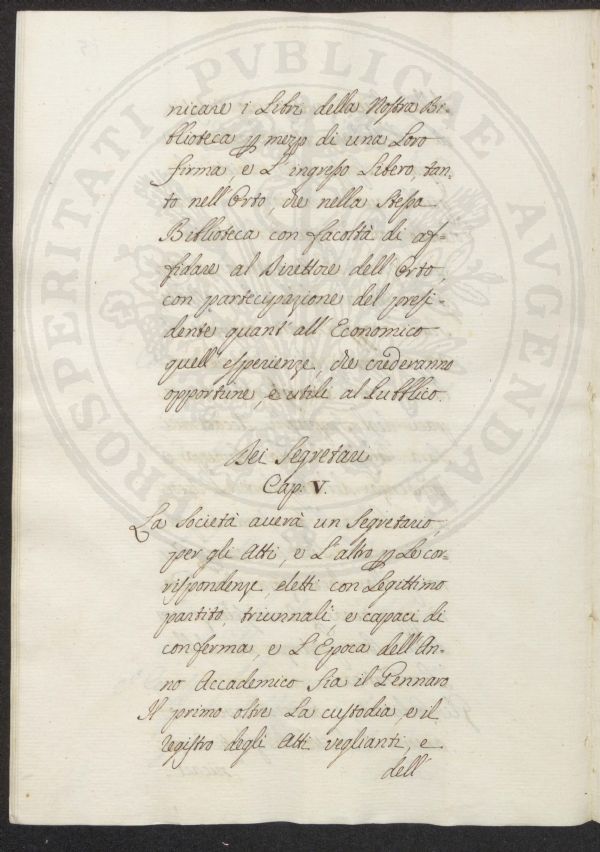 PROSPERITATI PVBLICAE AVGENDAE
nicare i Libri della Nostra Bi-
blioteca p mezzo di una Loro
firma, e L'ingresso Libero, tan-
to nell'Orto, che nella Stessa
Biblioteca con facoltà di af-
fidare al Direttore dell'Orto,
con partecipazione del presi-
dente quant'all'Economico
quell'esperienze, che crederanno
opportune, e utili al Pubblico.
Dei Segretari
Cap. V.
La Società averà un Segretario,
per gli Atti, e L'altro p Le cor-
rispondenze, eletti con Legittimo
partito, triennali, e capaci di
conferma, e L'Epoca dell'An-
no Accademico Sia il Gennaro
Il primo oltre La custodia, e il
registro degli Atti veglianti, e
dell'